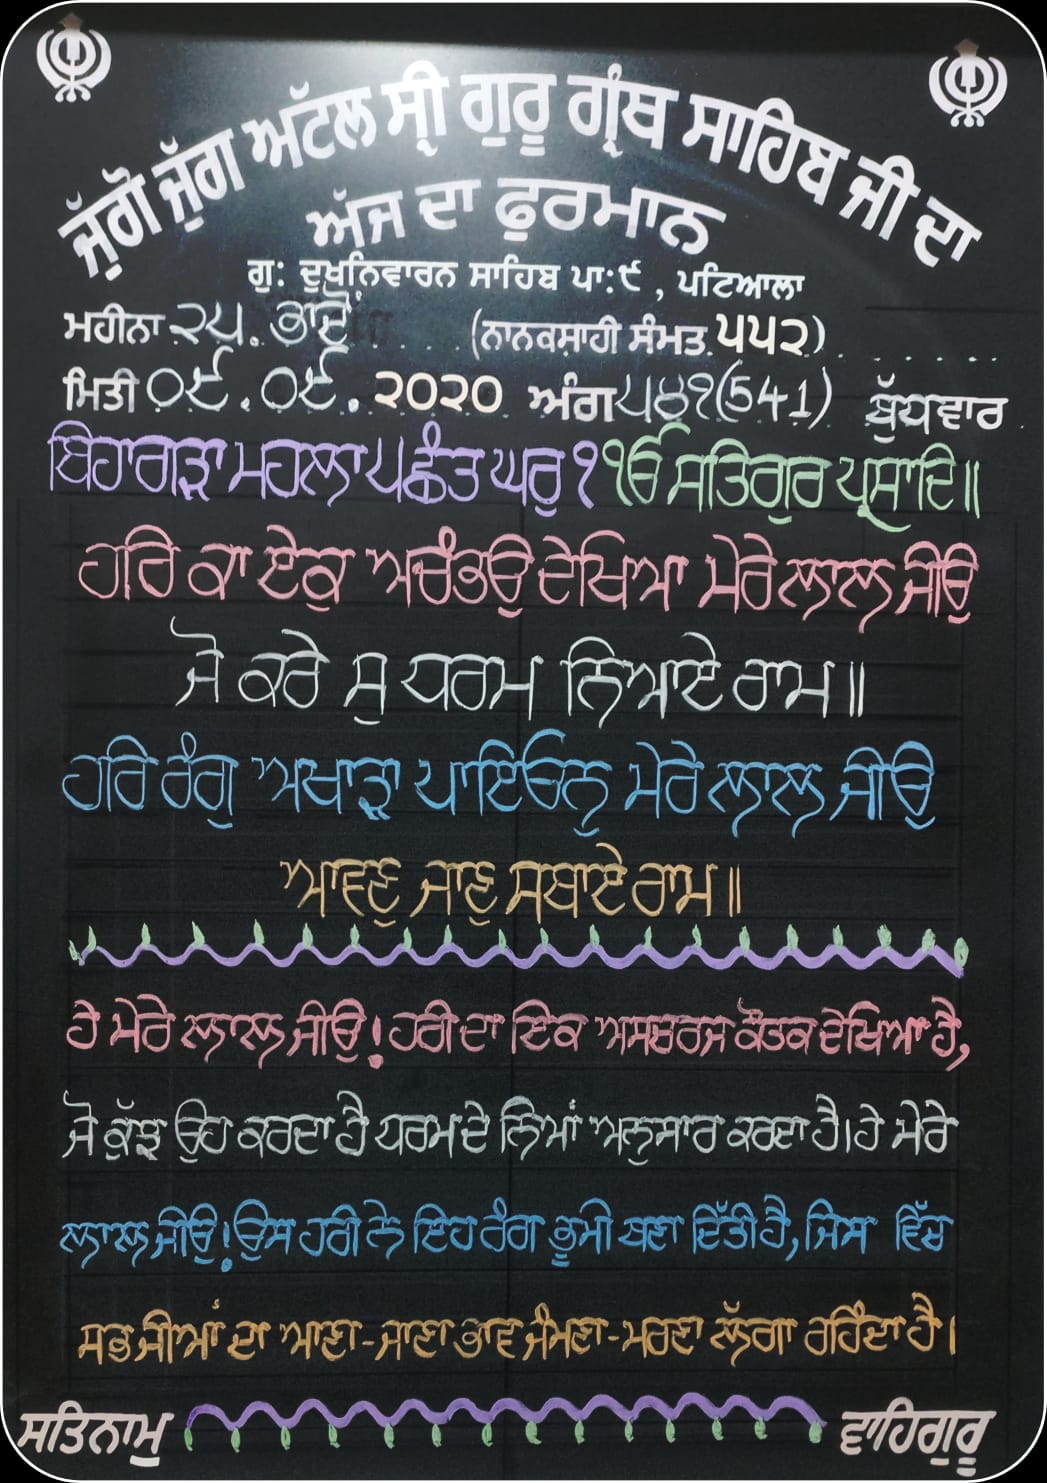 ਜੁੱਗੋ ਜੁੱਗ ਅਟੱਲ ਸ੍ਰੀ ਗੁਰੂ ਗ੍ਰੰਥ ਸਾਹਿਬ ਜੀ ਦਾ
ਅੱਜ ਦਾ ਫੁਰਮਾਨ
ਗੁ: ਦੁਖਨਿਵਾਰਨ ਸਾਹਿਬ ਪਾ:੯ , ਪਟਿਆਲਾ
ਮਹੀਨਾ ੨੫. ਭਾਦੋਂ (ਨਾਨਕਸ਼ਾਹੀ ਸੰਮਤ ੫੫੨)
ਮਿਤੀ ੦੯.੦੯.੨੦੨੦ ਅੰਗ ੫੪੧(541) ਬੁੱਧਵਾਰ
ਬਿਹਾਗੜਾ ਮਹਲਾ ੫ ਛੰਤ ਘਰੁ ੧ ੴ ਸਤਿਗੁਰ ਪ੍ਰਸਾਦਿ॥
ਹਰਿ ਕਾ ਏਕੁ ਅਚੰਭਉ ਦੇਖਿਆ ਮੇਰੇ ਲਾਲ ਜੀਉ
ਜੋ ਕਰੇ ਸੁ ਧਰਮ ਨਿਆਏ ਰਾਮ॥
ਹਰਿ ਰੰਗੁ ਅਖਾੜਾ ਪਾਇਓਨੁ ਮੇਰੇ ਲਾਲ ਜੀਉ
ਆਵਣੁ ਜਾਣੁ ਸਬਾਏ ਰਾਮ॥
ਹੇ ਮੇਰੇ ਲਾਲ ਜੀਉ! ਹਰੀ ਦਾ ਇਕ ਅਸਚਰਜ ਕੌਤਕ ਦੇਖਿਆ ਹੈ,
ਜੋ ਕੁੱਝ ਉਹ ਕਰਦਾ ਹੈ ਧਰਮ ਦੇ ਨਿਆਂ ਅਨੁਸਾਰ ਕਰਦਾ ਹੈ। ਹੇ ਮੇਰੇ
ਲਾਲ ਜੀਉ! ਉਸ ਹਰੀ ਨੇ ਇਹ ਰੰਗ ਭੂਮੀ ਬਣਾ ਦਿੱਤੀ ਹੈ, ਜਿਸ ਵਿੱਚ
ਸਭ ਜੀਆਂ ਦਾ ਆਣਾ-ਜਾਣਾ ਭਾਵ ਜੰਮਣਾ-ਮਰਣਾ ਲੱਗਾ ਰਹਿੰਦਾ ਹੈ।
ਸਤਿਨਾਮੁ ਵਾਹਿਗੁਰੂ